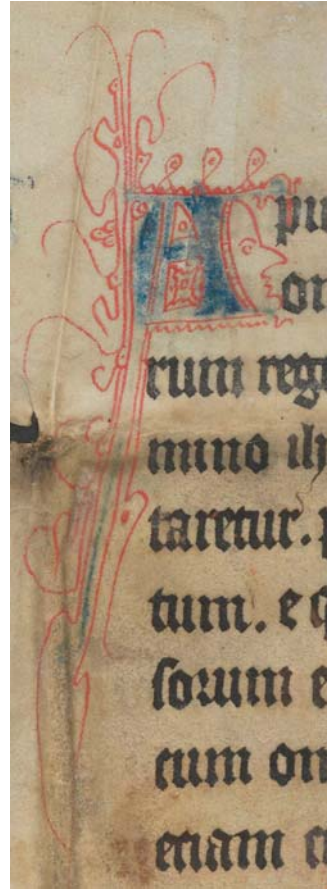 Apu
or
rum reg
mino ih
taretur. p
tum. e q
sorum e
cum om
etiam c